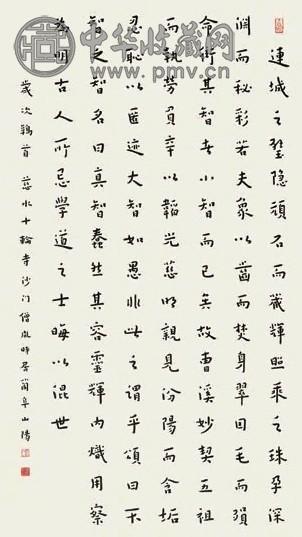 中华收藏网
www.pmv.cn
連城之璧隱頑石而藏輝乘之珠孕深
淵而秘彩若夫象以齒而焚身翠因毛而殞
命衒其智者小智而已矣故曹溪妙契五祖
而執勞負辛以韜光慈明親見汾陽而含垢
忍恥以匿迹大智如愚非此之謂乎頌曰不
智之智名曰真智蠢然其容靈輝內熾用察
為明古人所忌學道之士晦以混世
歲次鶉首 慈水十輪寺沙門僧胤時居蘭阜山陽